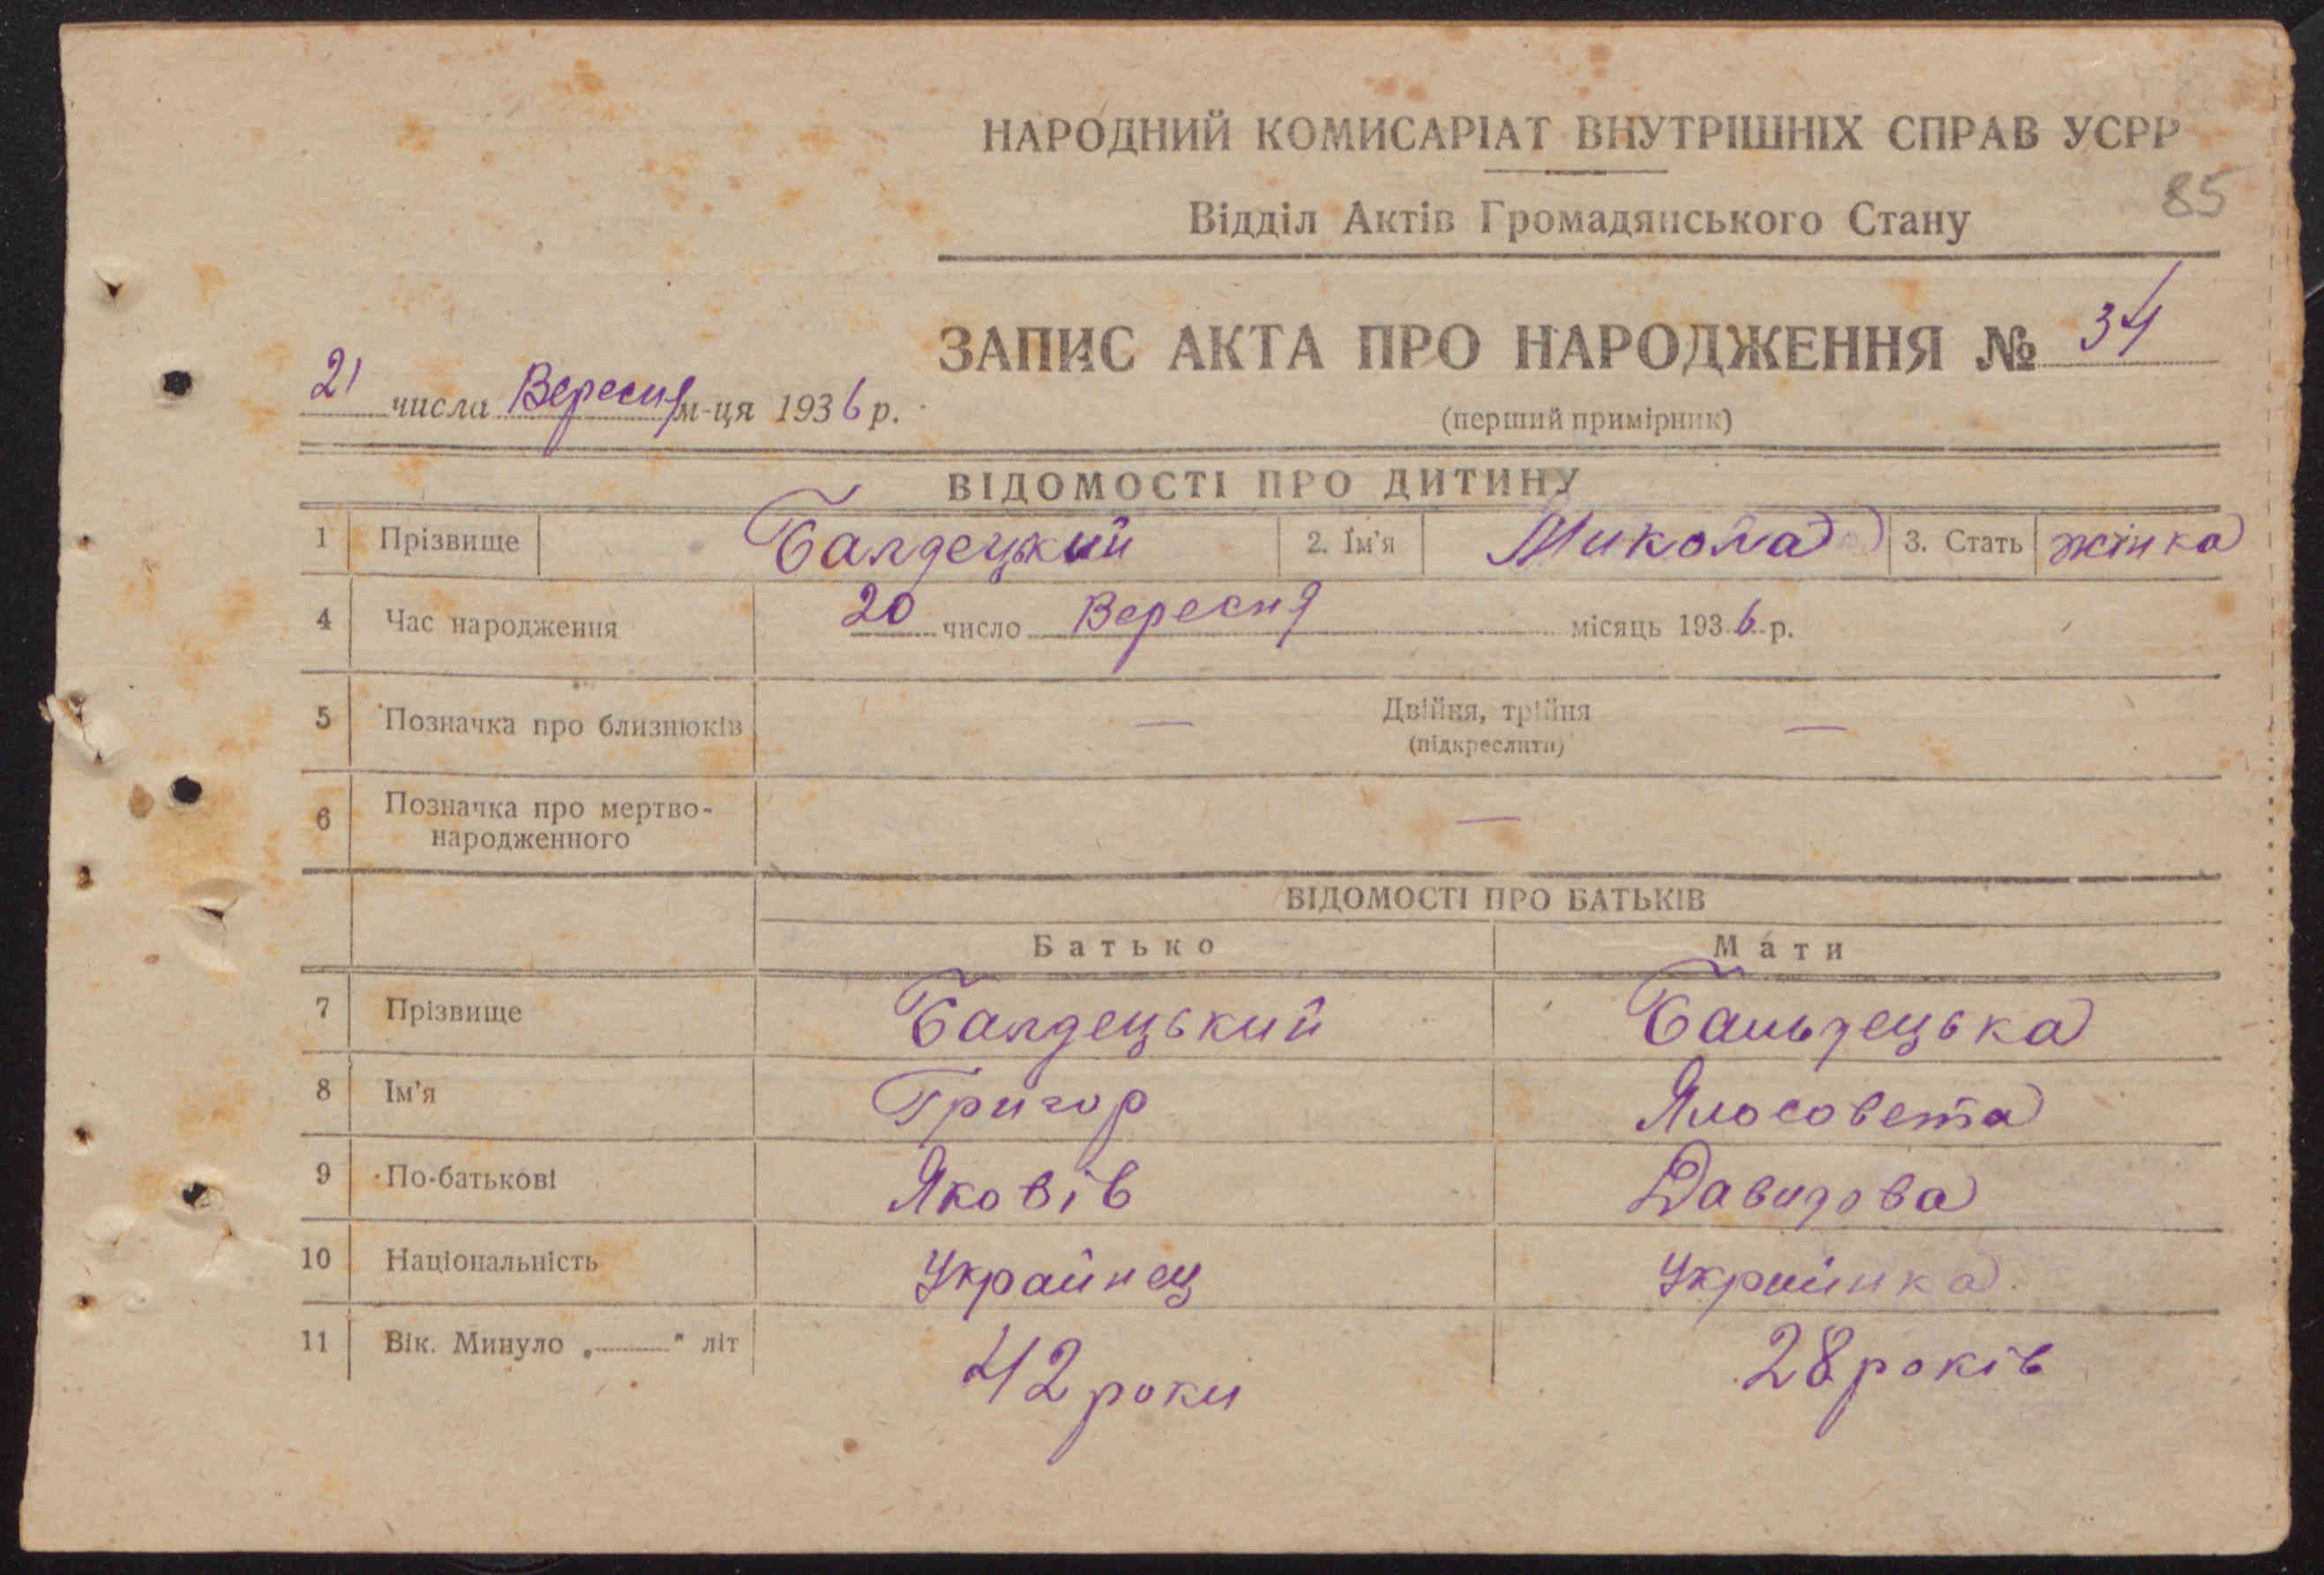 НАРОДНИЙ КОМИСАРІАТ ВНУТРІШНІХ СПРАВ УСРР
85
Відділ Актів Громадянського Стану
ЗАПИС АКТА ПРО НАРОДЖЕННЯ № 34
21 числа Вересня м-ця 1936 р.
(перший примірник)
ВІДОМОСТІ ПРО ДИТИНУ
1 Прізвище Балдецький 2. Ім'я Микола 3. Стать жінка
4 Час народження 20 число Вересня місяць 1936 р.
5 Позначка про близнюків — Двійня, трійня —
(підкреслити)
6 Позначка про мертво-
народженного —
ВІДОМОСТІ ПРО БАТЬКІВ
Батько Мати
7 Прізвище Балдецький Бальдецька
8 Ім'я Григор Ялосовета
9 По-батькові Яковів Давидова
10 Національність Украйнец Украйинка
11 Вік. Минуло „ " літ 42 роки 28 років